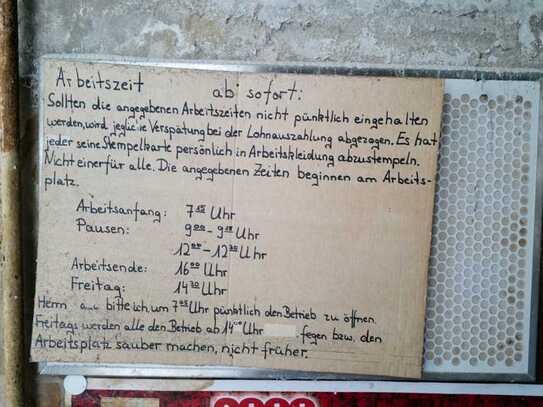 Arbeitszeit ab sofort:
Sollten die angegebenen Arbeitszeiten nicht pünktlich eingehalten
werden, wird jegliche Verspätung bei der Lohnauszahlung abgezogen. Es hat
jeder seine Stempelkarte persönlich in Arbeitskleidung abzustempeln.
Nicht einer für alle. Die angegebenen Zeiten beginnen am Arbeits-
platz.
Arbeitsanfang: 7 15 Uhr
Pausen: 9 00 - 9 15 Uhr
12 00 - 12 30 Uhr
Arbeitsende: 16 00 Uhr
Freitag: 14 30 Uhr
Herrn bitte ich um 7 05 Uhr pünktlich den Betrieb zu öffnen.
Freitags werden alle den Betrieb ab Uhr fegen bzw. den
Arbeitsplatz sauber machen, nicht früher.